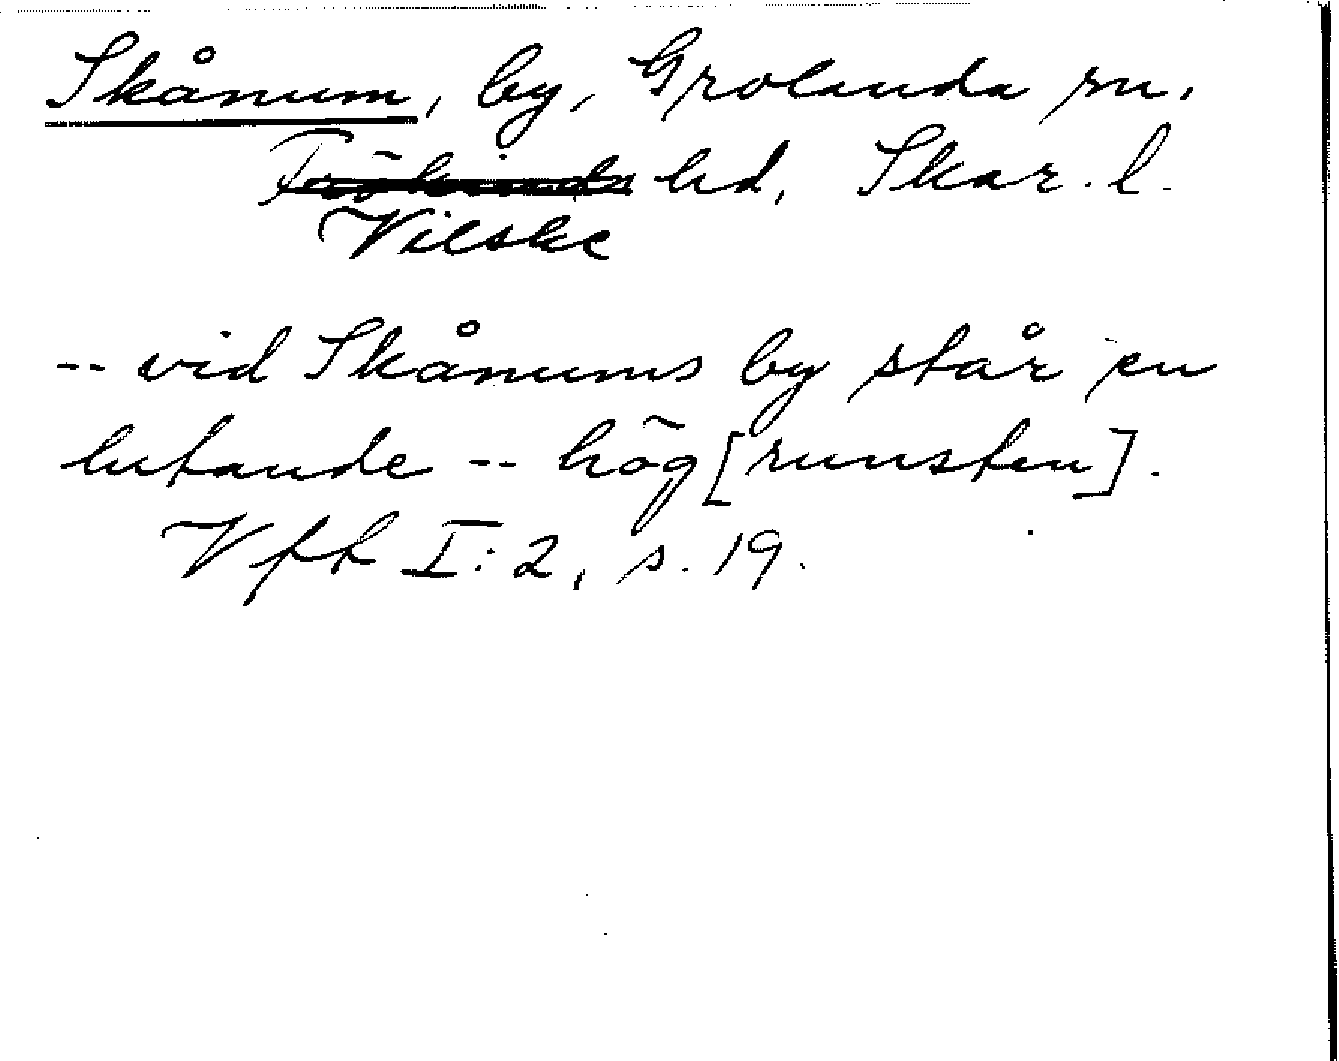 Skånum, by, Grolanda sn,
Frökinds hd, Skar. l.
Vilske
-- vid Skånums by står en
lutande -- hög [runsten].
Vft I:2, s. 19.